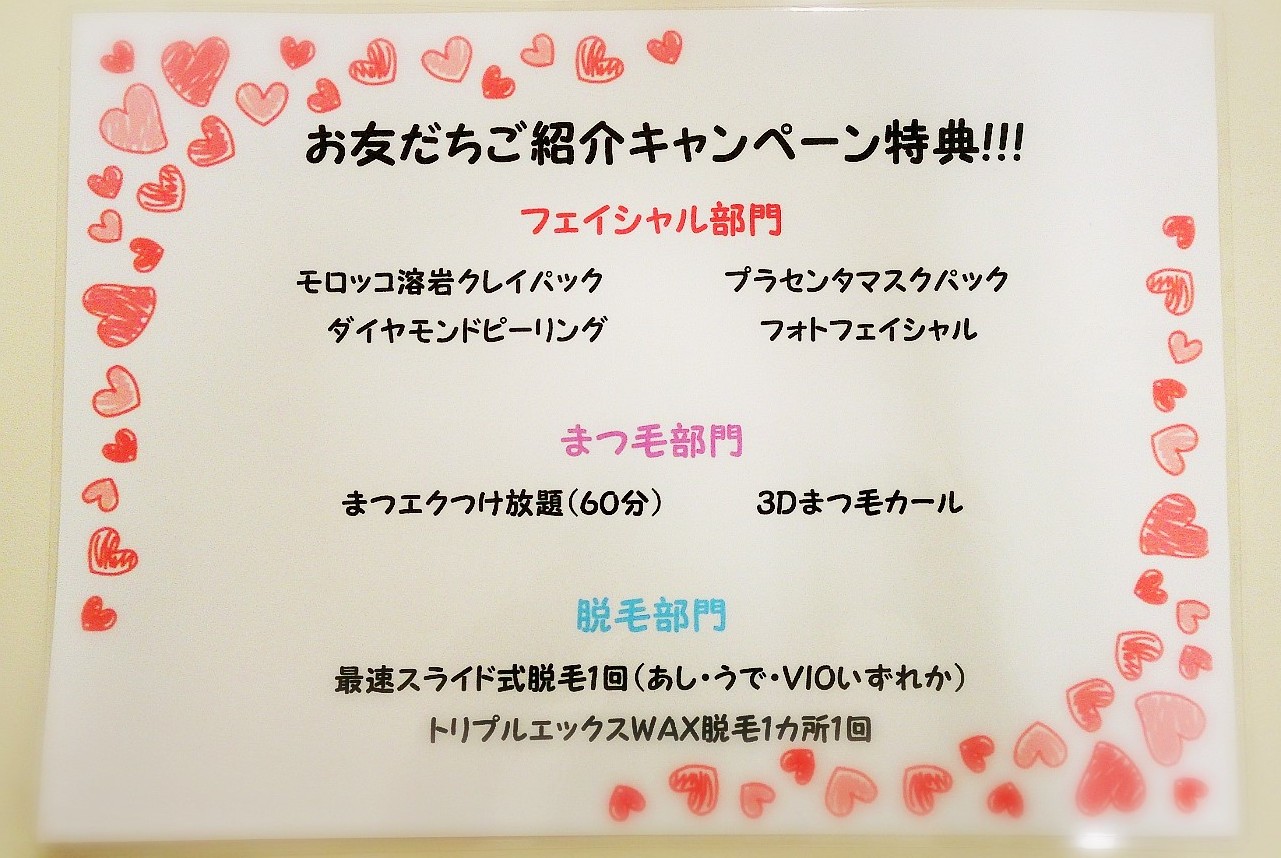 お友だちご紹介キャンペーン特典!!!
フェイシャル部門
モロッコ溶岩クレイパック　プラセンタマスクパック
ダイヤモンドピーリング　フォトフェイシャル
まつ毛部門
まつエクつけ放題(60分)　3Dまつ毛カール
脱毛部門
最速スライド式脱毛1回(あし・うで・VIOいずれか)
トリプルエックスWAX脱毛1カ所1回